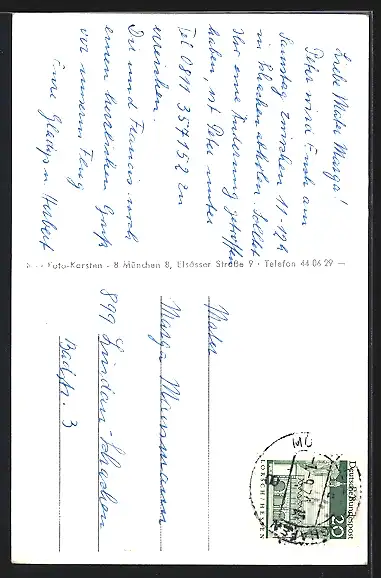 Liebe Mater Marga!
Peter wird Euch am
Samstag zwischen 11-12h
in Schachen abholen. Solltet
Ihr eine Änderung getroffen
haben, ist Peter unter
Tel 0811 357152 zu
erreichen.
Dir und Francis noch
einen herzlichen Gruß
vor unserem Flug
Eure Gladys u. Herbert
Foto-Karsten - 8 München 8, Elsässer Straße 9 · Telefon 44 06 29
Mater
Marga Mansmann
899 Lindau-Schachen
Badstr. 3
Deutsche Bundespost
20
LORSCH/HESSEN